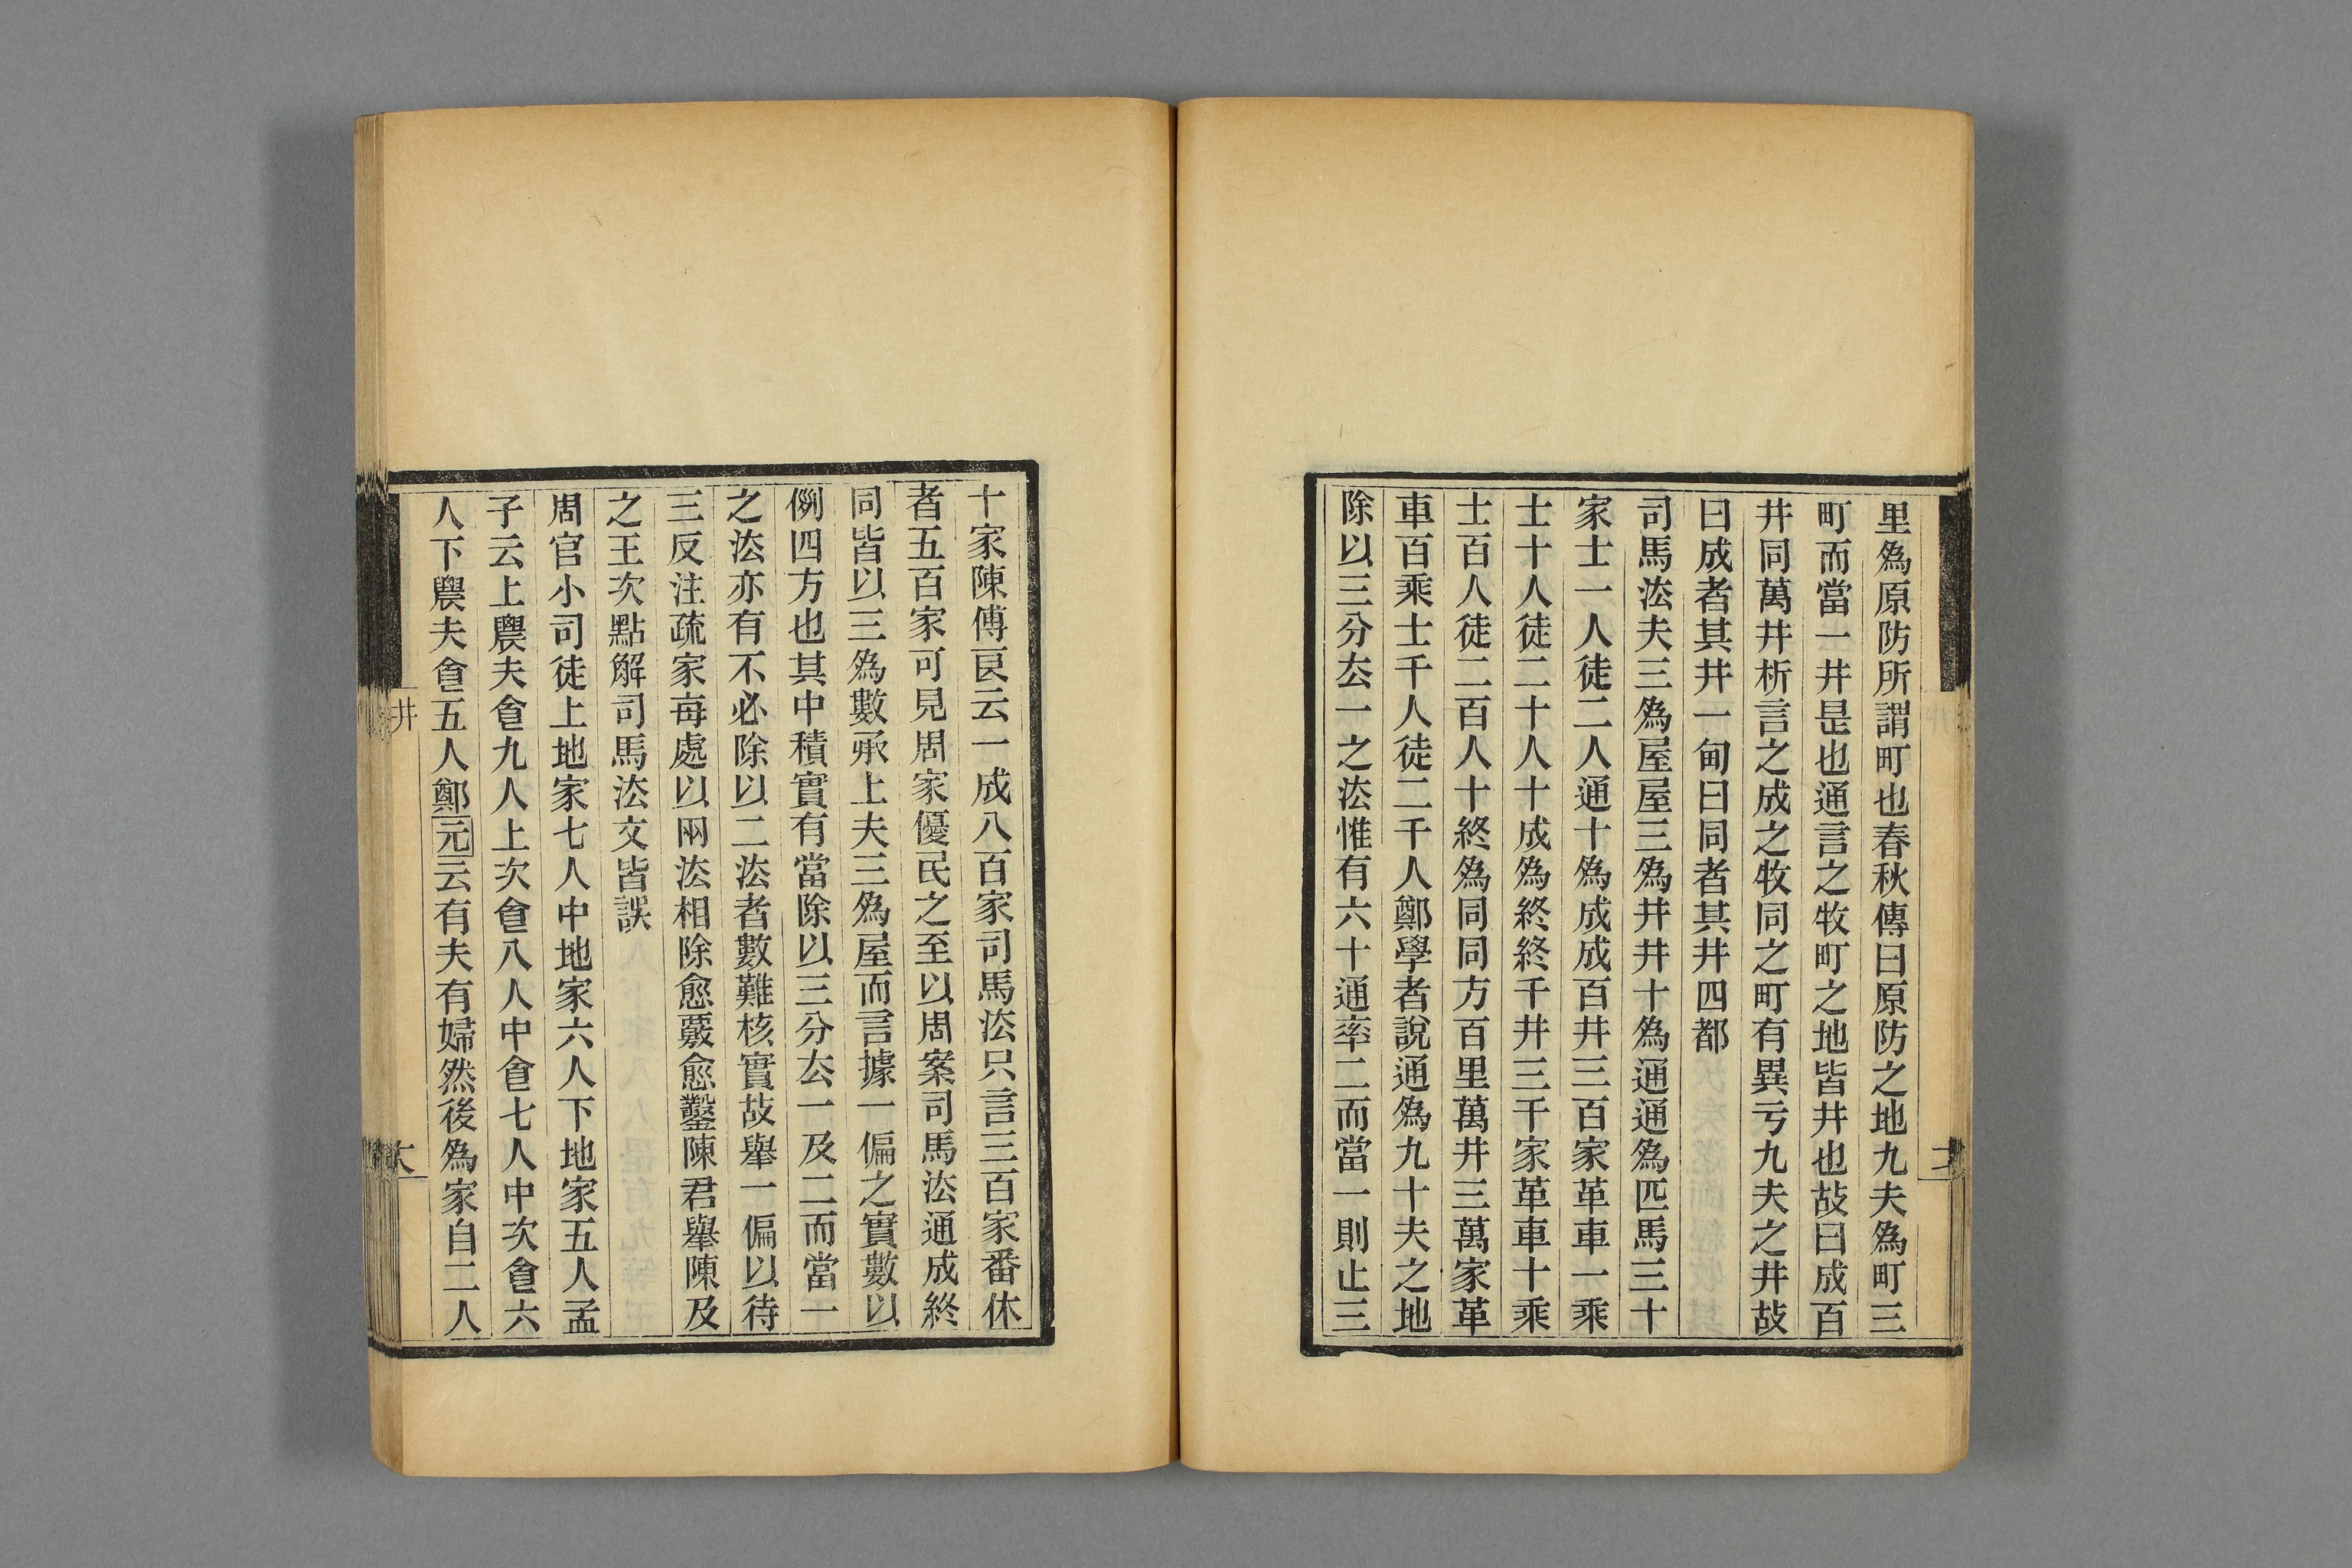 里爲原防所謂町也春秋傳曰原防之地九夫爲町三
町而當一井是也通言之牧町之地皆井也故曰成百
井同萬井析言之成之牧同之町有異亏九夫之井故
曰成者其井一甸曰同者其井四都
司馬㳒夫三爲屋屋三爲井井十爲通通爲匹馬三十
家士一人徒二人通十爲成成百井三百家革車一乘
士十人徒二十人十成爲終終千井三千家革車十乘
士百人徒二百人十終爲同同方百里萬井三萬家革
車百乘士千人徒二千人鄭學者說通爲九十夫之地
除以三分厺一之㳒惟有六十通率二而當一則止三
十家陳傅良云一成八百家司馬㳒只言三百家番休
者五百家可見周家優民之至以周案司馬㳒通成終
同皆以三爲數承上夫三爲屋而言據一偏之實數以
例四方也其中積實有當除以三分厺一及二而當一
之㳒亦有不必除以二㳒者數難核實故舉一偏以待
三反注疏家每處以兩㳒相除愈覈愈鑿陳君舉陳及
之王次點解司馬㳒文皆誤
周官小司徒上地家七人中地家六人下地家五人孟
子云上農夫食九人上次食八人中食七人中次食六
人下農夫食五人鄭元云有夫有婦然後爲家自二人
井